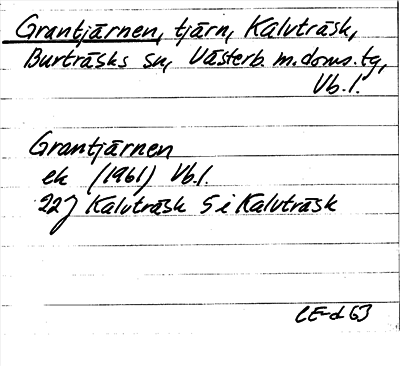 Grantjärnen, tjärn, Kalvträsk,
Burträsks sn, Västerb. m. doms. tg,
Vb. l.
Grantjärnen
ek (1961) Vb. l.
22J Kalvträsk S i Kalvträsk